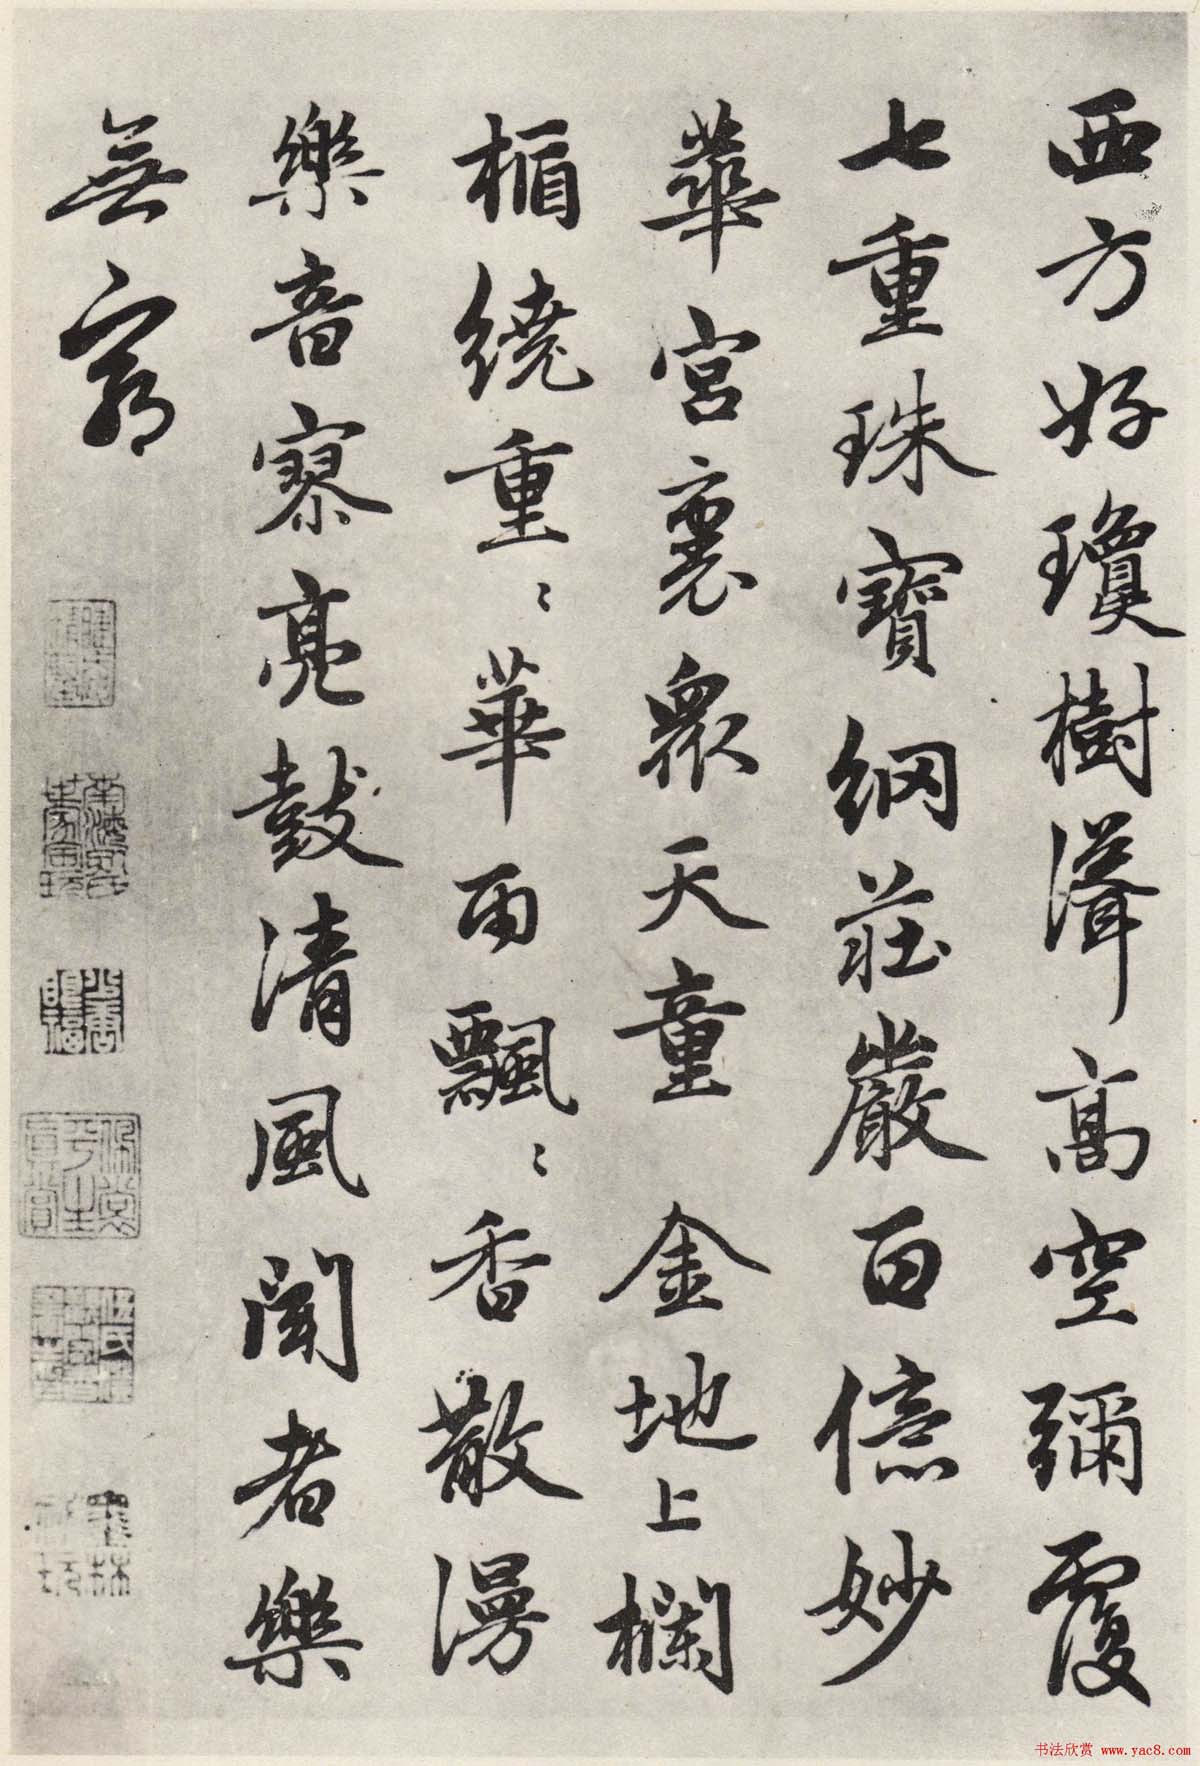 西方好瓊樹聳高空彌覆
七重珠寶網莊嚴百億妙
華宮裏衆天童 金地上欄
楯繞重〻華雨飄〻香散漫
樂音寥亮鼓清風聞者樂
無窮
书法欣赏 www.yac8.com